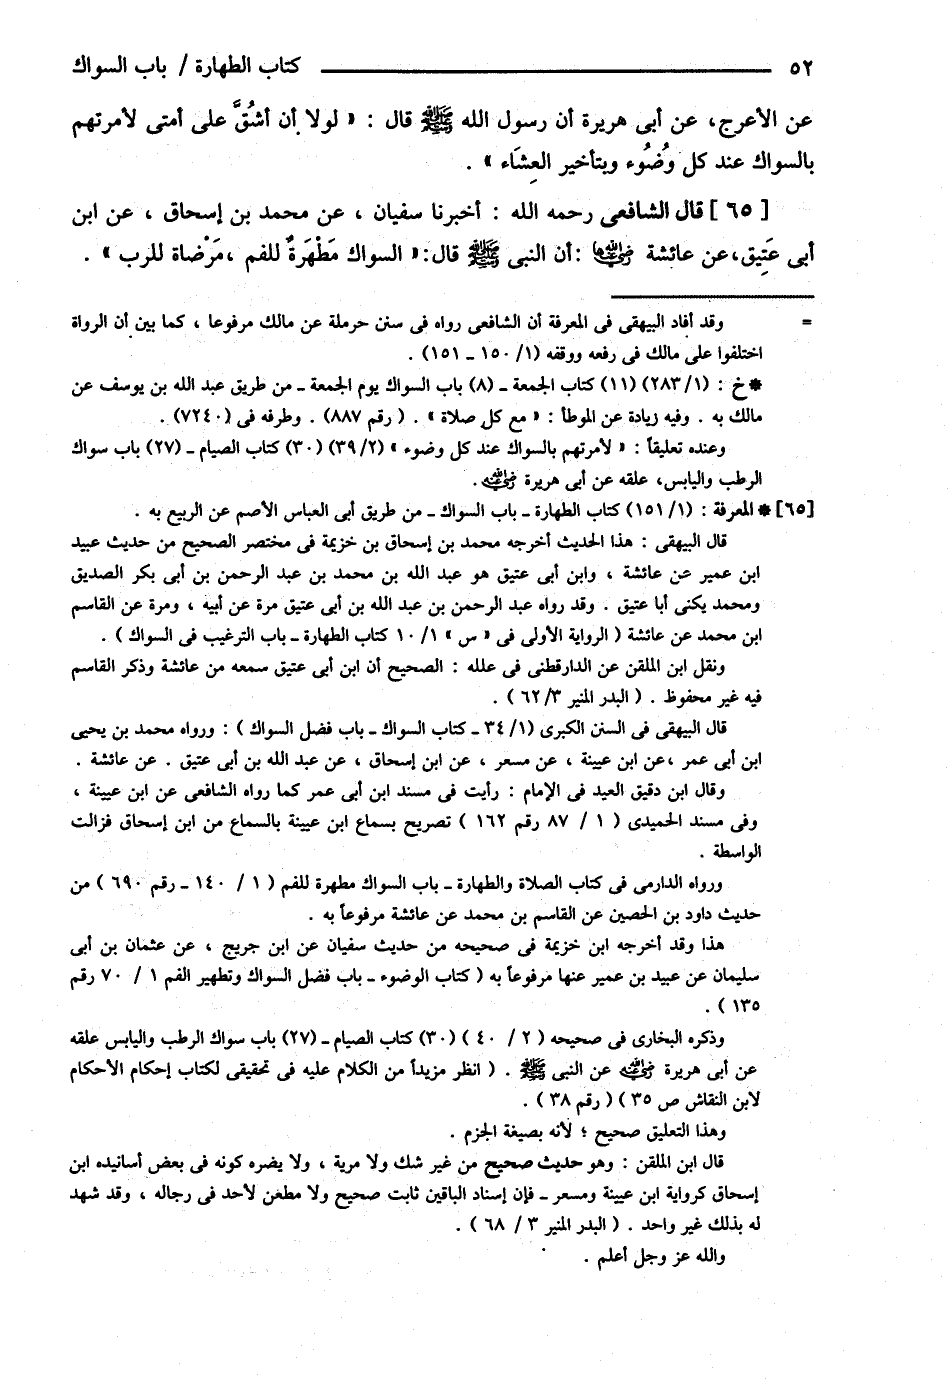 ٥٢ كتاب الطهارة / باب السواك
عن الأعرج، عن أبى هريرة أن رسول الله ﷺ قال : « لولا أن أشُقَّ على أمتى لأمرتهم
بالسواك عند كل وُضُوء وبتأخير العِشَاء » .
[ ٦٥ ] قال الشافعى رحمه الله : أخبرنا سفيان ، عن محمد بن إسحاق ، عن ابن
أبى عَتِيق،عن عائشة رضي الله عنها :أن النبى ﷺ قال:« السواك مَطْهَرةٌ للفم ،مَرْضاة للرب » .
= وقد أفاد البيهقى فى المعرفة أن الشافعى رواه فى سنن حرملة عن مالك مرفوعا ، كما بين أن الرواة
اختلفوا على مالك فى رفعه ووقفه (١/ ١٥٠ ــ ١٥١) .
* خ : (١/ ٢٨٣) (١١) كتاب الجمعة ــ (٨) باب السواك يوم الجمعة ــ من طريق عبد الله بن يوسف عن
مالك به . وفيه زيادة عن الموطأ : « مع كل صلاة » . ( رقم ٨٨٧) . وطرفه فى (٧٢٤٠) .
وعنده تعليقاً : « لأمرتهم بالسواك عند كل وضوء » (٢/ ٣٩) (٣٠) كتاب الصيام ــ (٢٧) باب سواك
الرطب واليابس، علقه عن أبى هريرة رضي الله عنه .
[٦٥] * المعرفة : (١/ ١٥١) كتاب الطهارة ــ باب السواك ــ من طريق أبى العباس الأصم عن الربيع به .
قال البيهقى : هذا الحديث أخرجه محمد بن إسحاق بن خزيمة فى مختصر الصحيح من حديث عبيد
ابن عمير عن عائشة ، وابن أبى عتيق هو عبد الله بن محمد بن عبد الرحمن بن أبى بكر الصديق
ومحمد يكنى أبا عتيق . وقد رواه عبد الرحمن بن عبد الله بن أبى عتيق مرة عن أبيه ، ومرة عن القاسم
ابن محمد عن عائشة ( الرواية الأولى فى « س » ١/ ١٠ كتاب الطهارة ــ باب الترغيب فى السواك ) .
ونقل ابن الملقن عن الدارقطنى فى علله : الصحيح أن ابن أبى عتيق سمعه من عائشة وذكر القاسم
فيه غير محفوظ . ( البدر المنير ٣/ ٦٢ ) .
قال البيهقى فى السنن الكبرى (١/ ٣٤ ــ كتاب السواك ــ باب فضل السواك ) : ورواه محمد بن يحيى
ابن أبى عمر ،عن ابن عيينة ، عن مسعر ، عن ابن إسحاق ، عن عبد الله بن أبى عتيق . عن عائشة .
وقال ابن دقيق العيد فى الإمام : رأيت فى مسند ابن أبى عمر كما رواه الشافعى عن ابن عيينة ،
وفى مسند الحميدى ( ١ / ٨٧ رقم ١٦٢ ) تصريح بسماع ابن عيينة بالسماع من ابن إسحاق فزالت
الواسطة .
ورواه الدارمى فى كتاب الصلاة والطهارة ــ باب السواك مطهرة للفم ( ١ / ١٤٠ ــ رقم ٦٩٠ ) من
حديث داود بن الحصين عن القاسم بن محمد عن عائشة مرفوعاً به .
هذا وقد أخرجه ابن خزيمة فى صحيحه من حديث سفيان عن ابن جريج ، عن عثمان بن أبى
سليمان عن عبيد بن عمير عنها مرفوعاً به ( كتاب الوضوء ــ باب فضل السواك وتطهير الفم ١ / ٧٠ رقم
١٣٥ ) .
وذكره البخارى فى صحيحه ( ٢ / ٤٠ ) (٣٠) كتاب الصيام ــ (٢٧) باب سواك الرطب واليابس علقه
عن أبى هريرة رضي الله عنه عن النبى ﷺ . ( انظر مزيداً من الكلام عليه فى تحقيقى لكتاب إحكام الأحكام
لابن النقاش ص ٣٥ ) ( رقم ٣٨ ) .
وهذا التعليق صحيح ؛ لأنه بصيغة الجزم .
قال ابن الملقن : وهو حديث صحيح من غير شك ولا مرية ، ولا يضره كونه فى بعض أسانيده ابن
إسحاق كرواية ابن عيينة ومسعر ــ فإن إسناد الباقين ثابت صحيح ولا مطعن لأحد فى رجاله ، وقد شهد
له بذلك غير واحد . ( البدر المنير ٣ / ٦٨ ) .
والله عز وجل أعلم .